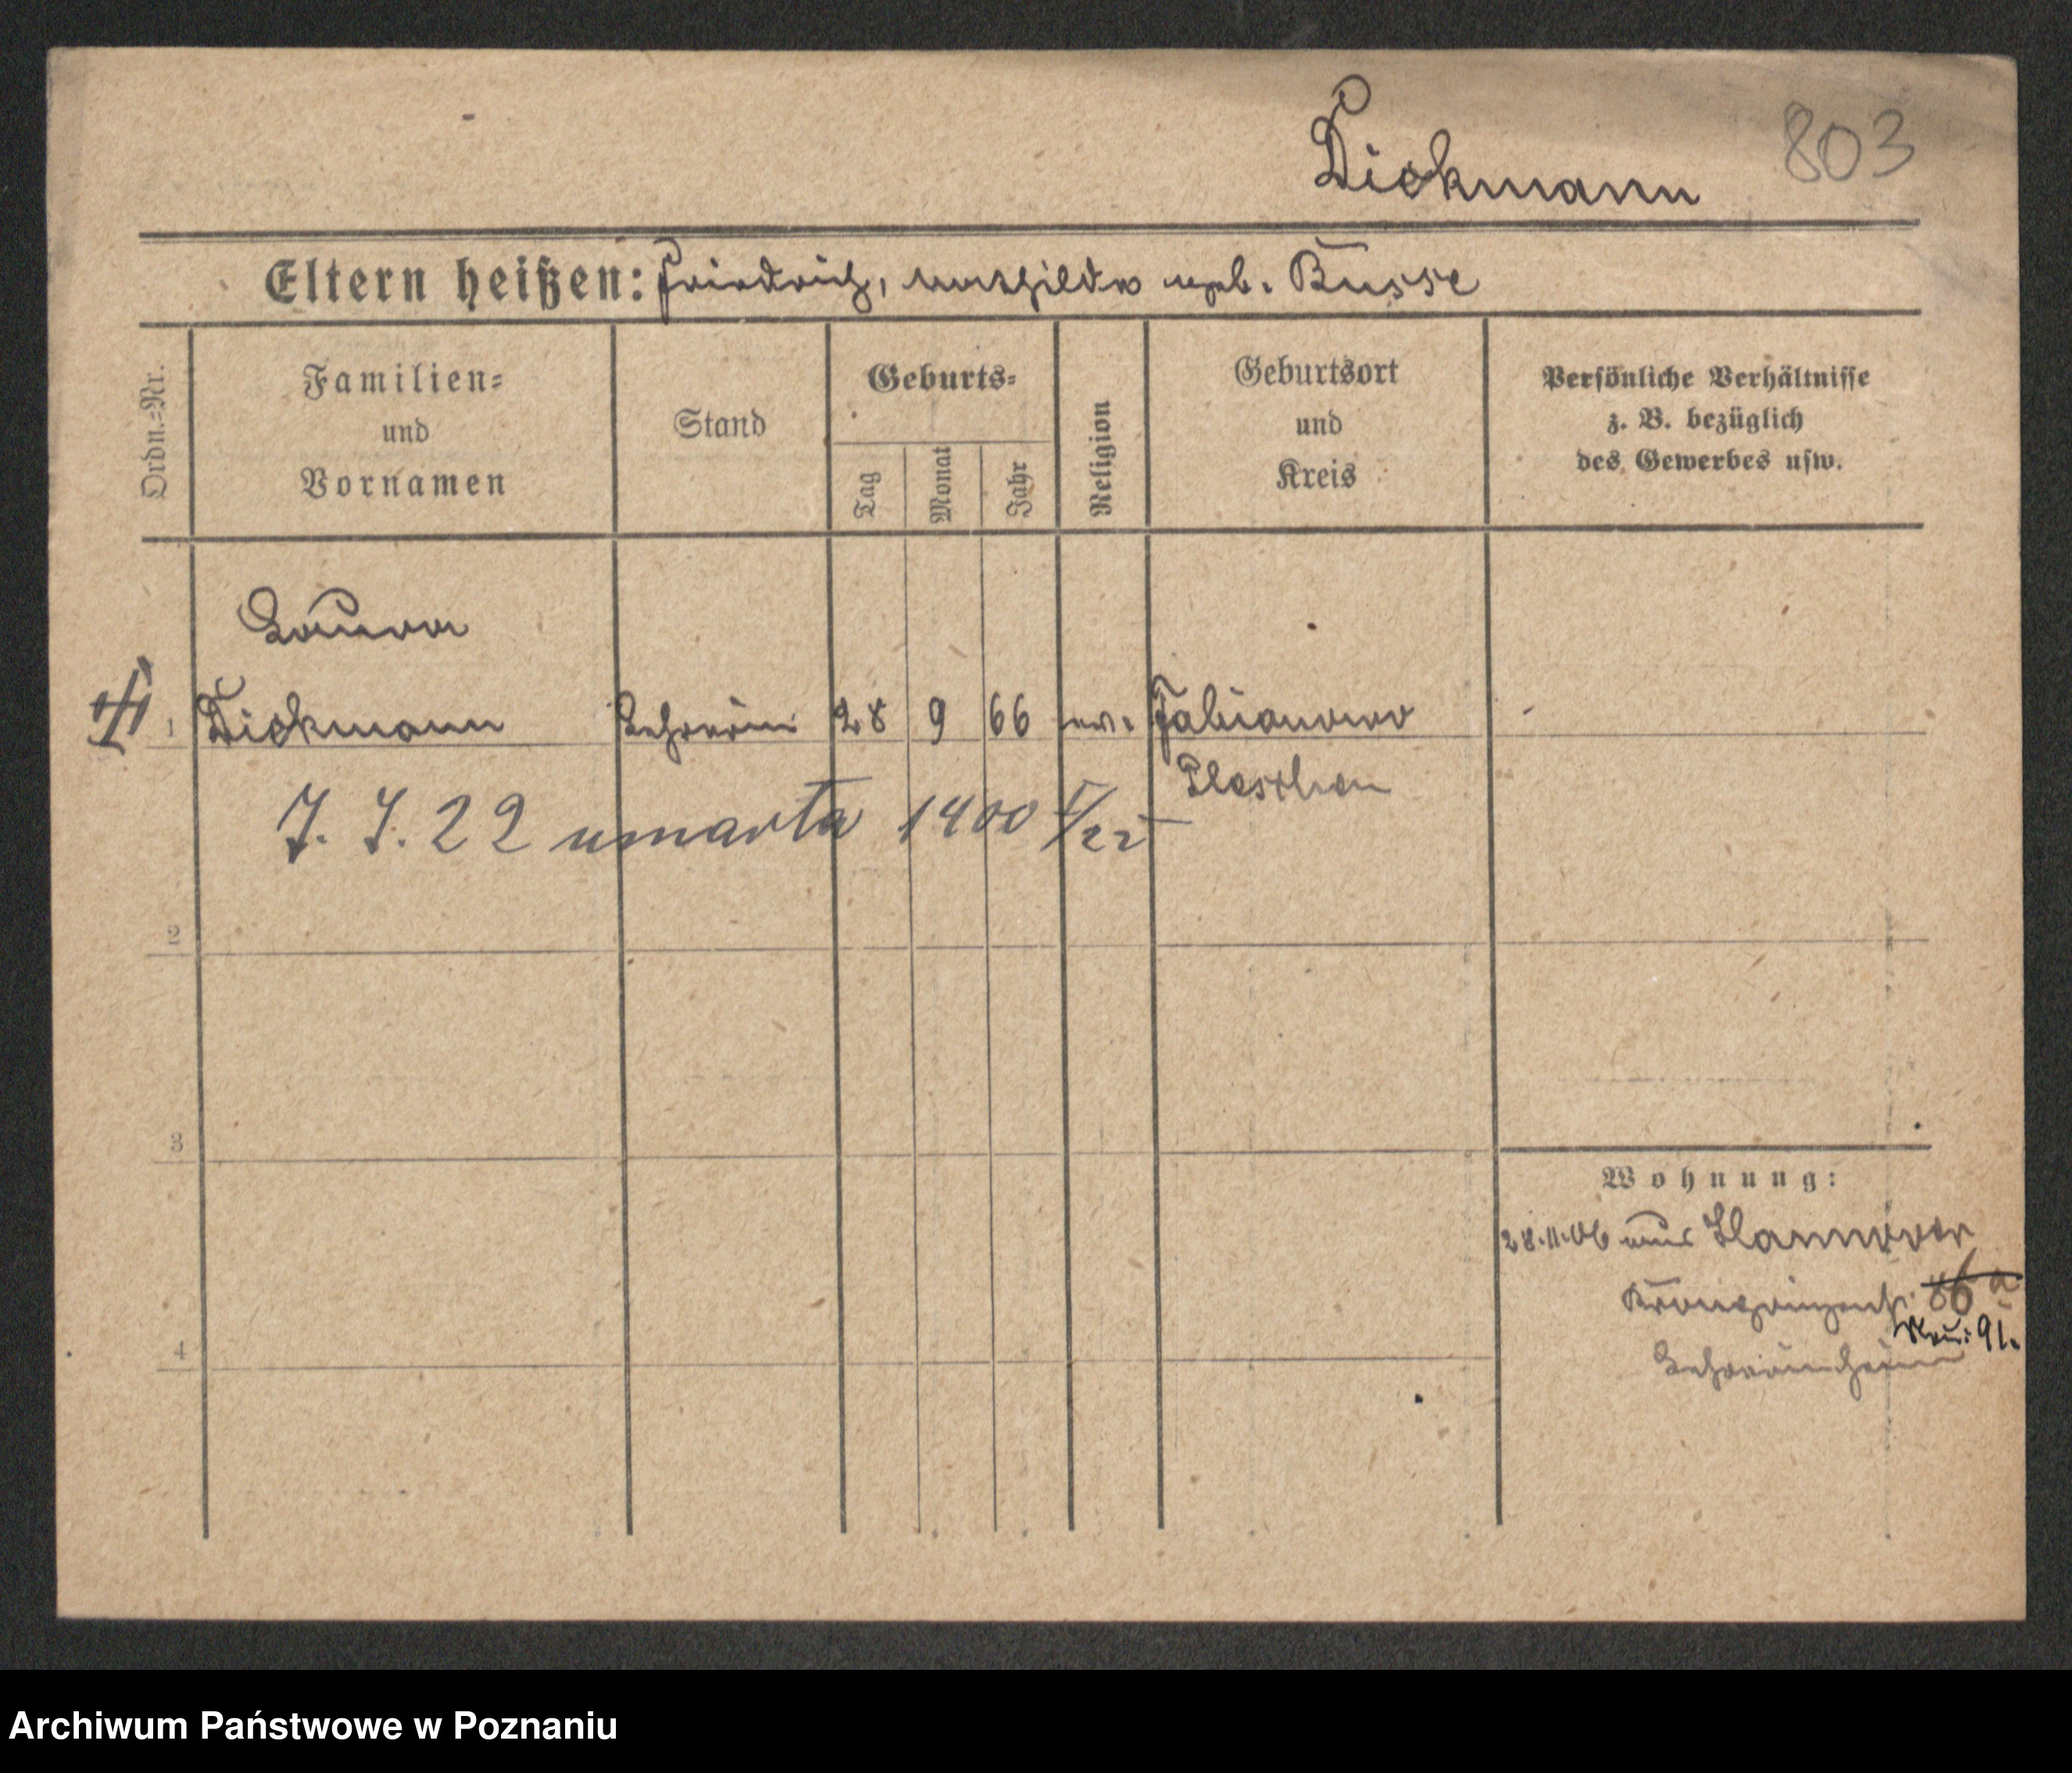 Dickmann 803
Eltern heißen: Friedrich, Mathilde geb. Busse
Ordn.-Nr.
Familien- und Vornamen
Stand
Geburts-
Tag
Monat
Jahr
Religion
Geburtsort und Kreis
Persönliche Verhältnisse
z. B. bezüglich
des Gewerbes usw.
Laura
1 Dickmann Lehrerin 28 9 66 ev. Fabianowo -
Pleschen
7. 7. 22 umarła 1400 /22
2
3
4
Wohnung:
28.11.06 aus Hannover
Kronprinzenstr. 86a
Neu: 91.
Lehrerinheim
Archiwum Państwowe w Poznaniu